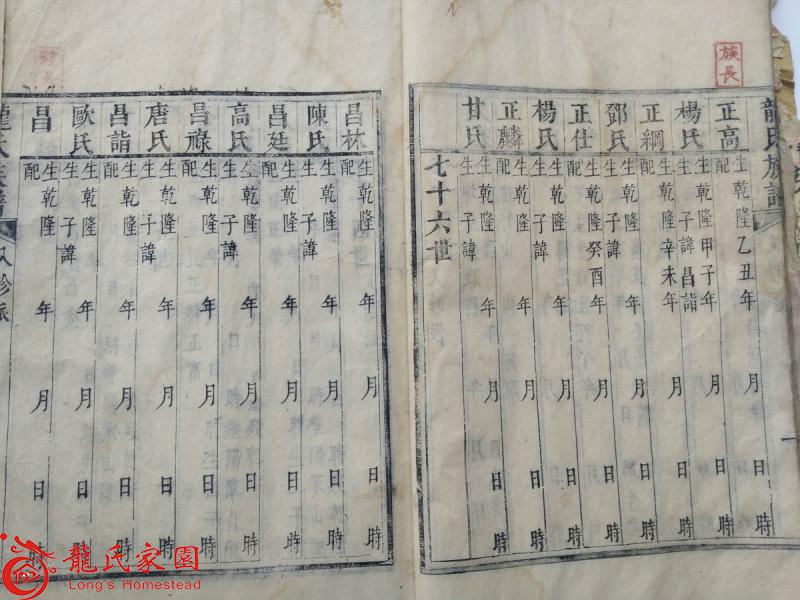 族長
龍氏族譜
正高 生乾隆乙丑年 月 日 時 配
楊氏 生乾隆甲子年 月 日 時 子諱昌詣
正綱 生乾隆辛未年 月 日 時 配
鄧氏 生乾隆 年 月 日 時 子諱
正仕 生乾隆癸酉年 月 日 時 配
楊氏 生乾隆 年 月 日 時 子諱
正麟 生乾隆 年 月 日 時 配
甘氏 生乾隆 年 月 日 時 子諱
七十六世
昌林 生乾隆 年 月 日 時 配
陳氏 生乾隆 年 月 日 時 子諱
昌廷 生乾隆 年 月 日 時 配
高氏 生乾隆 年 月 日 時 子諱
昌祿 生乾隆 年 月 日 時 配
唐氏 生乾隆 年 月 日 時 子諱
昌詣 生乾隆 年 月 日 時 配
歐氏 生乾隆 年 月 日 時 子諱
昌 生乾隆 年 月 日 時 配
龍氏族譜
龍氏家園
Long's Homestead